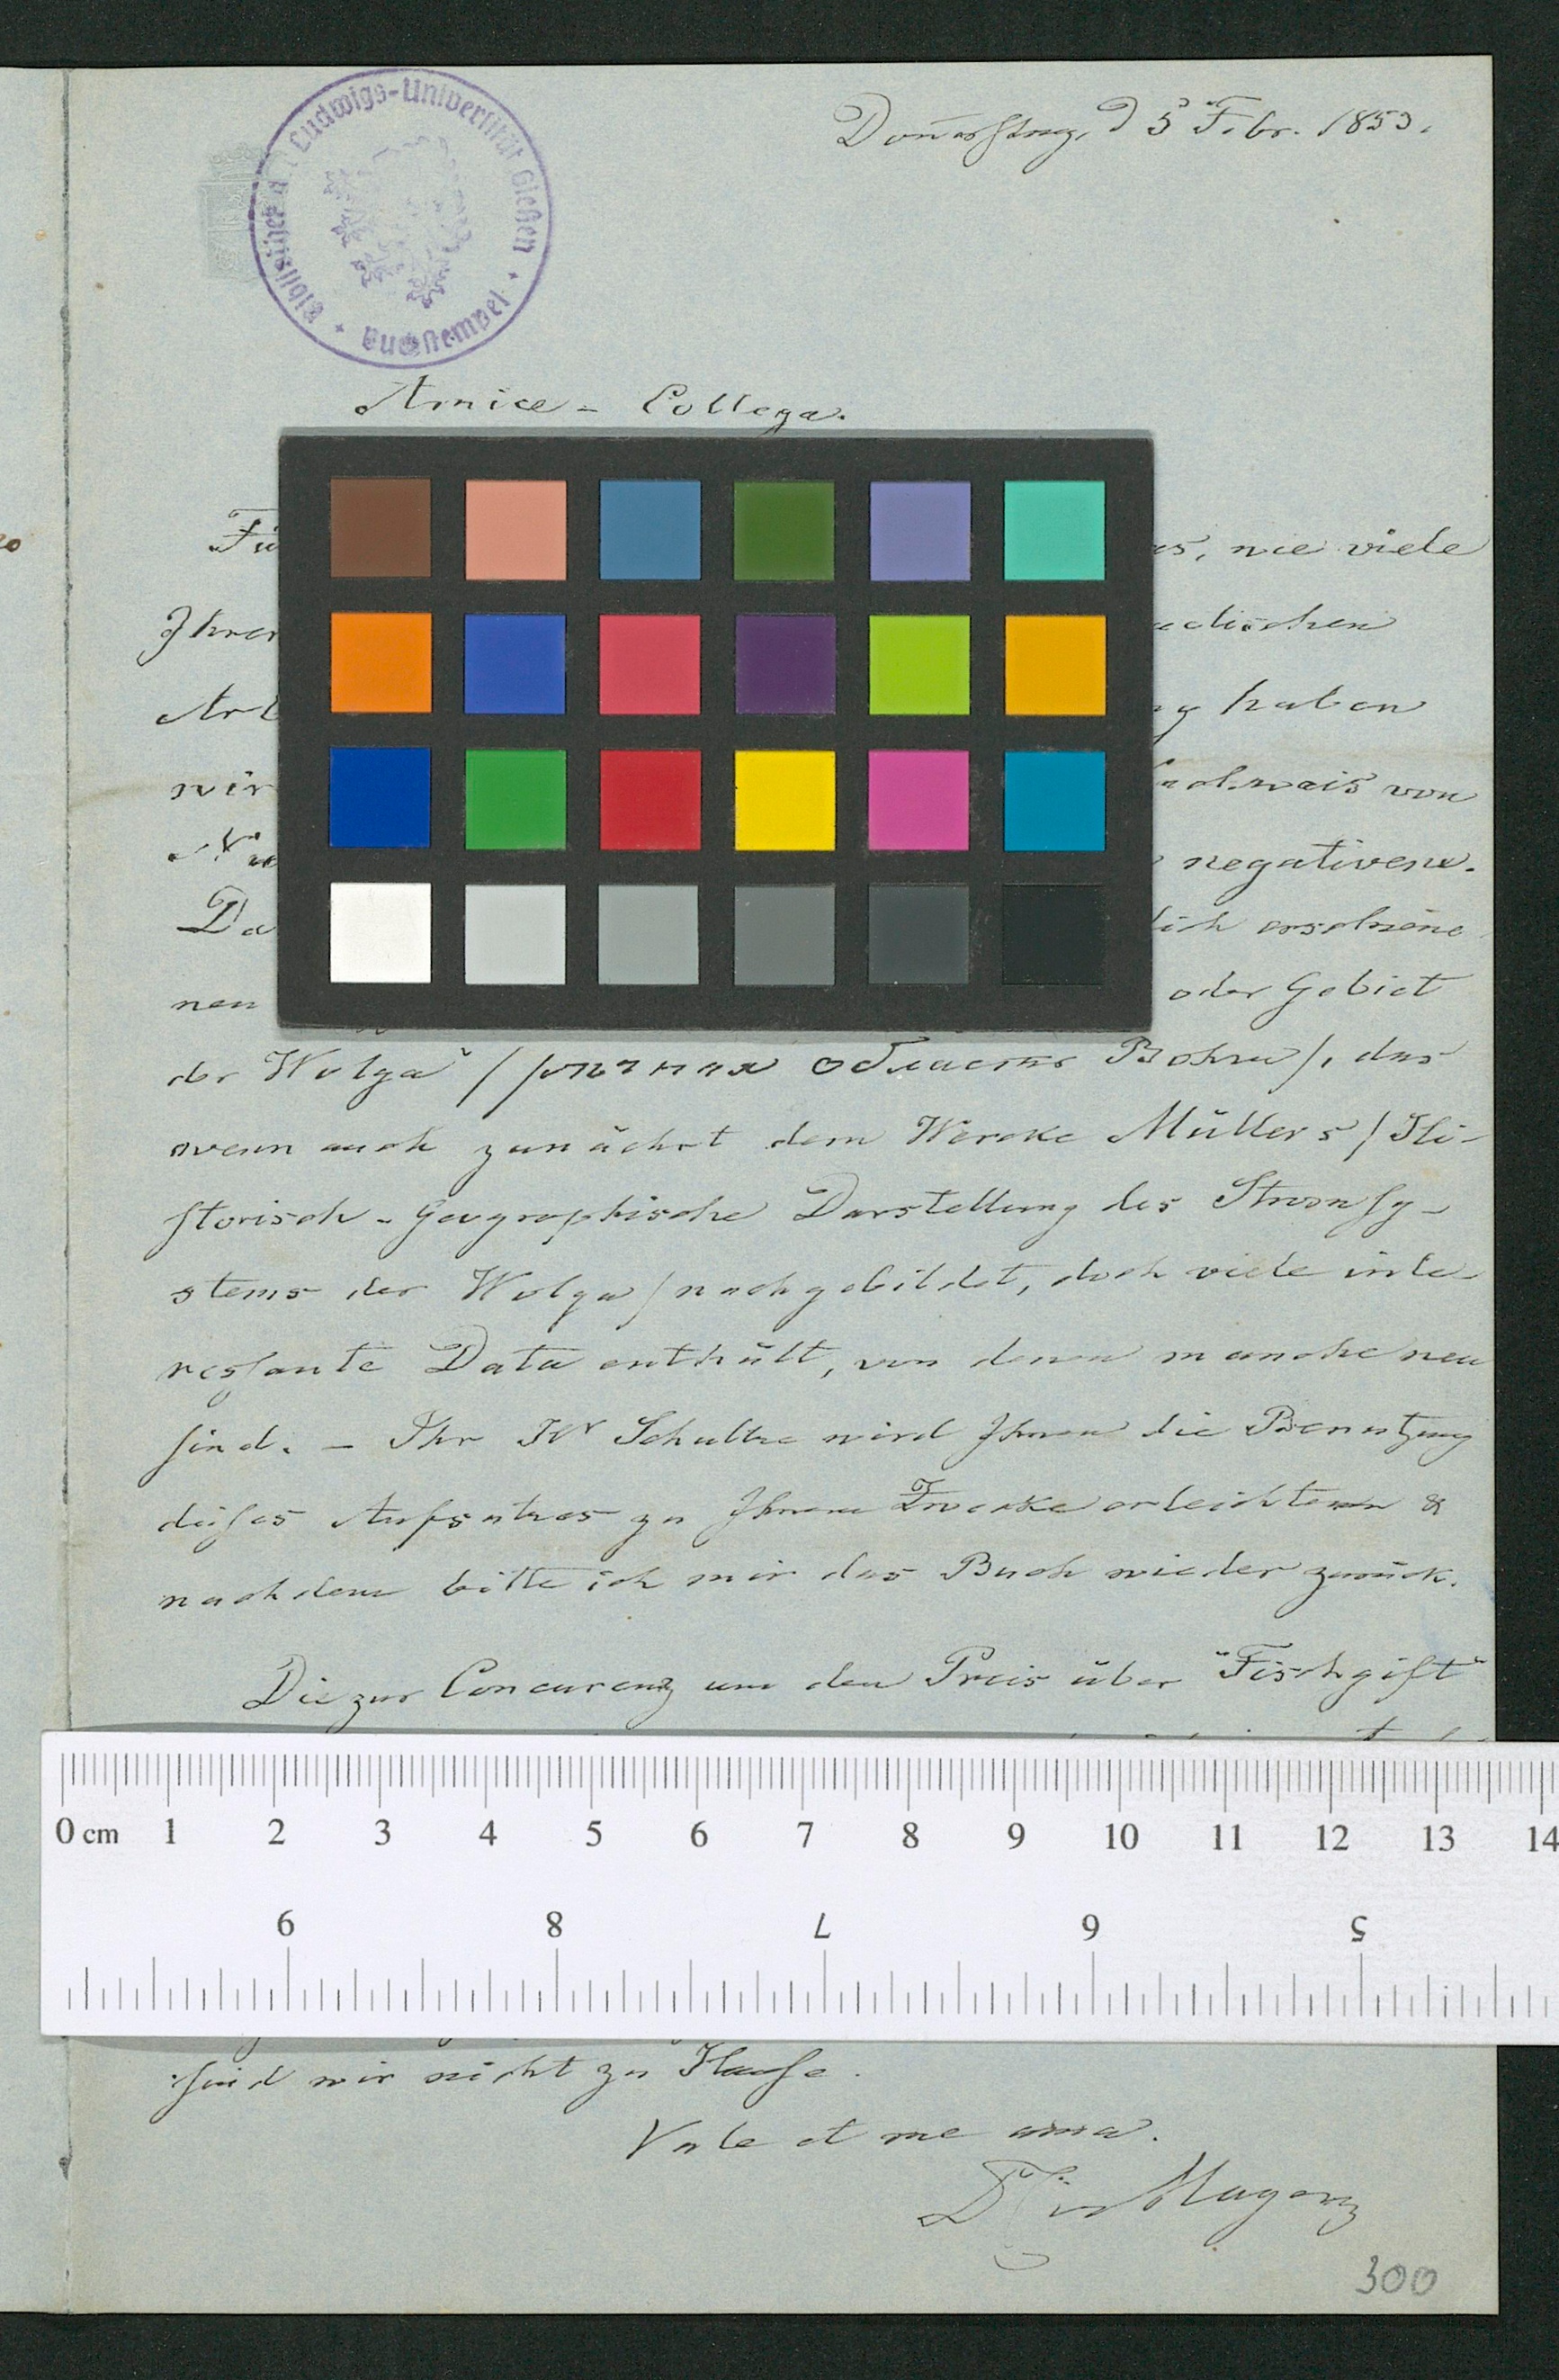 Bibliothek d. Ludwigs-Universität Gießen
Buchstempel
Donnerstag, d 5 Febr. 1853.
Amice Collega.
Fü
wie viele
Ihrer
haben
wir
von
negativen.
Da
erschiene
nen
oder Gebiet
der Wolga" / область Волги /, das
wenn auch zunächst dem Wercke Müllers / Hi-
storisch-Geographische Darstellung des Stromsy-
stems der Wolga / nachgebildet, doch viele inte-
ressante Data enthält, von denen manche neu
sind. – Ihr Hr Schultze wird Ihnen die Benutzung
dieses Aufsatzes zu Ihrem Zwecke erleichtern &
nachdem bitte ich mir das Buch wieder zurück.
Die zur Concurenz um den Preis über "Fischgift"
0 cm 1 2 3 4 5 6 7 8 9 10 11 12 13 14
9 8 7 6 5
sind wir nicht zu Hause.
Vale et me ama.
300